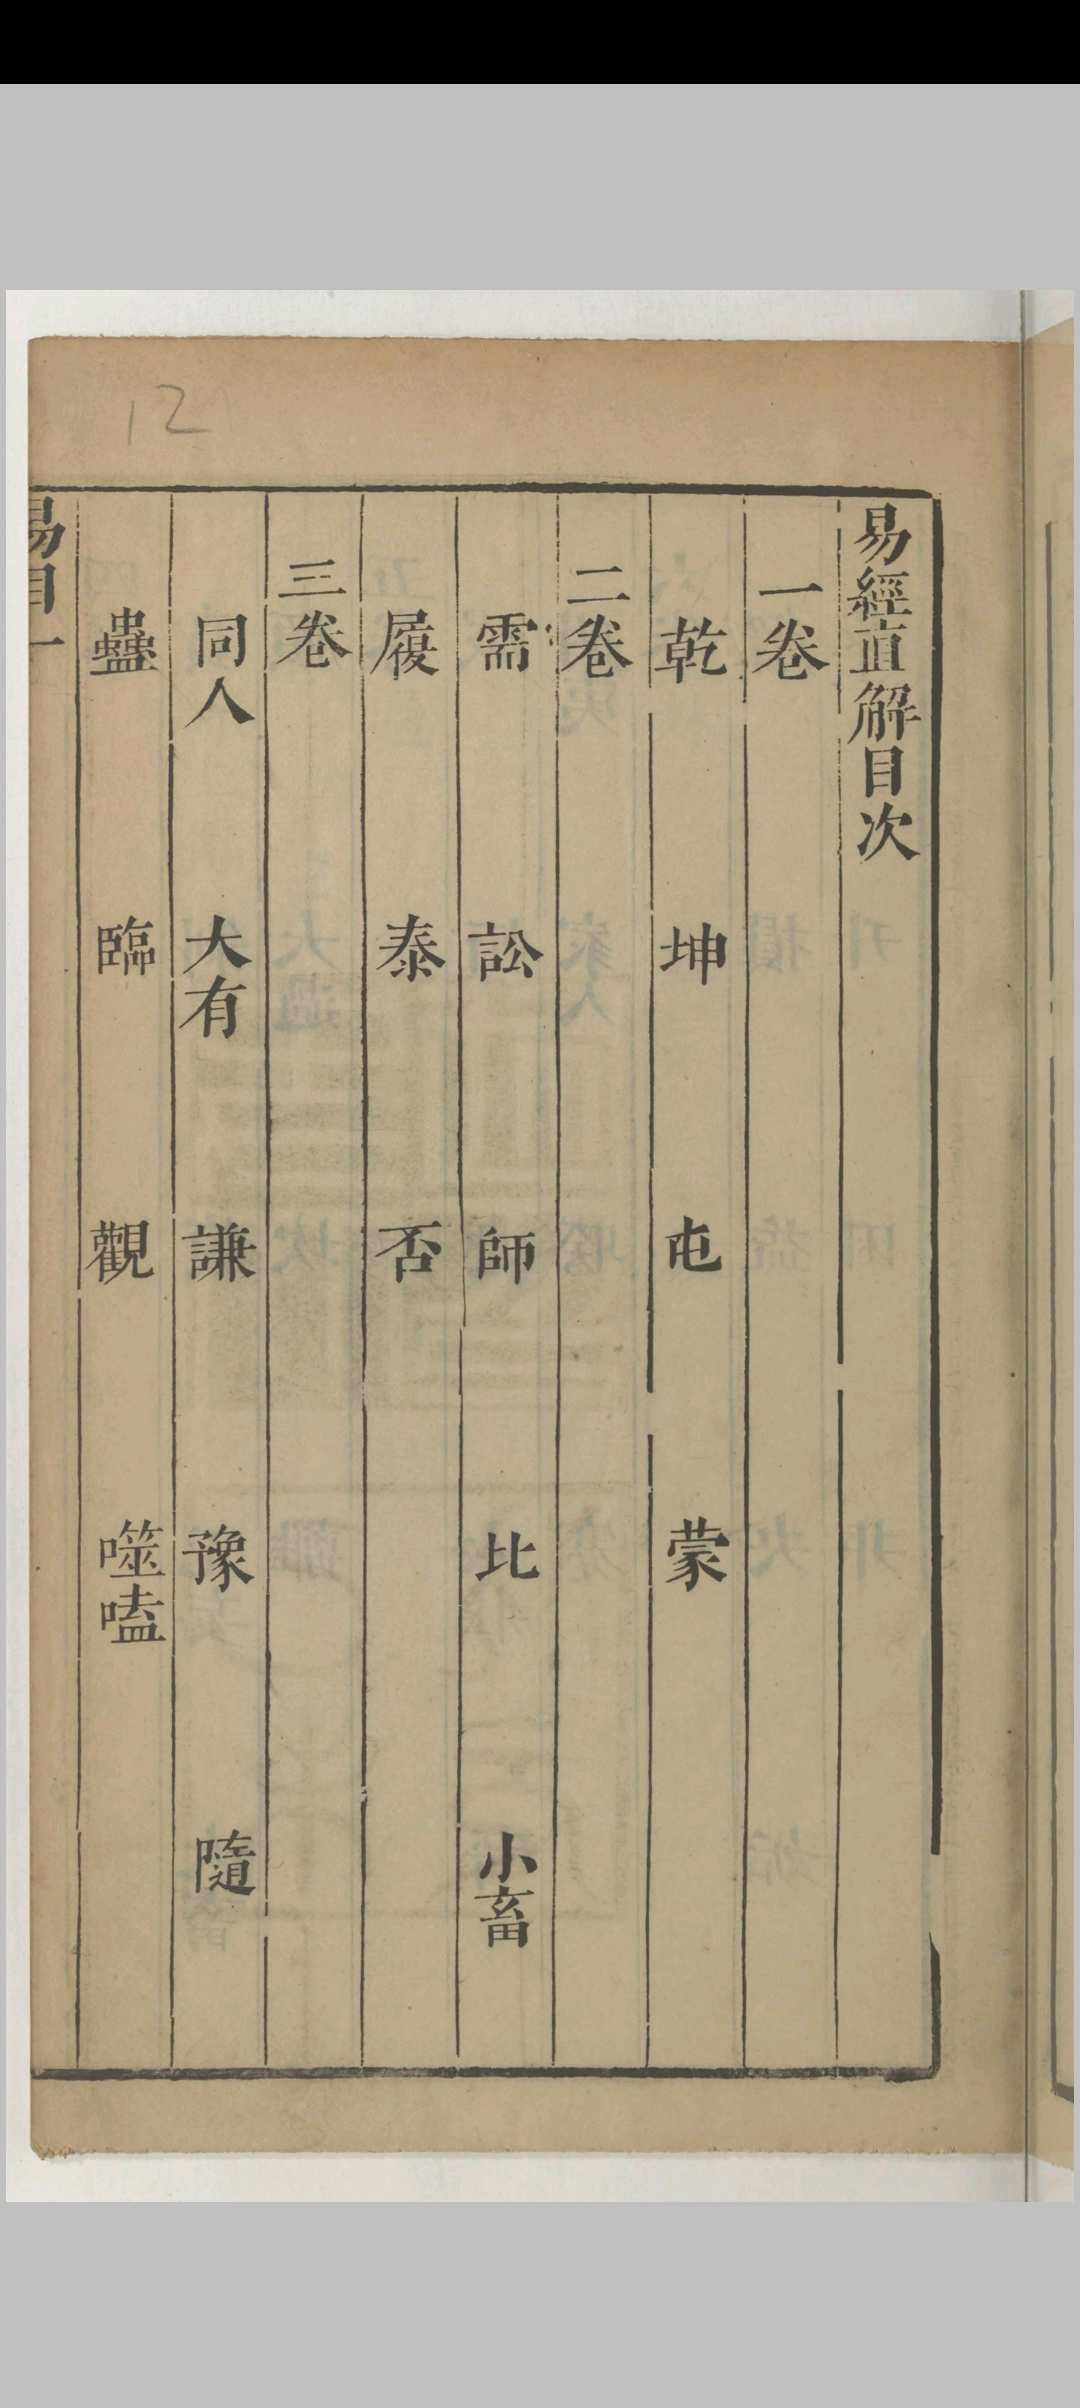 12
易經直解目次
一卷
乾 坤 屯 蒙
二卷
需 訟 師 比 小畜
履 泰 否
三卷
同人 大有 謙 豫 隨
蠱 臨 觀 噬嗑
易目一